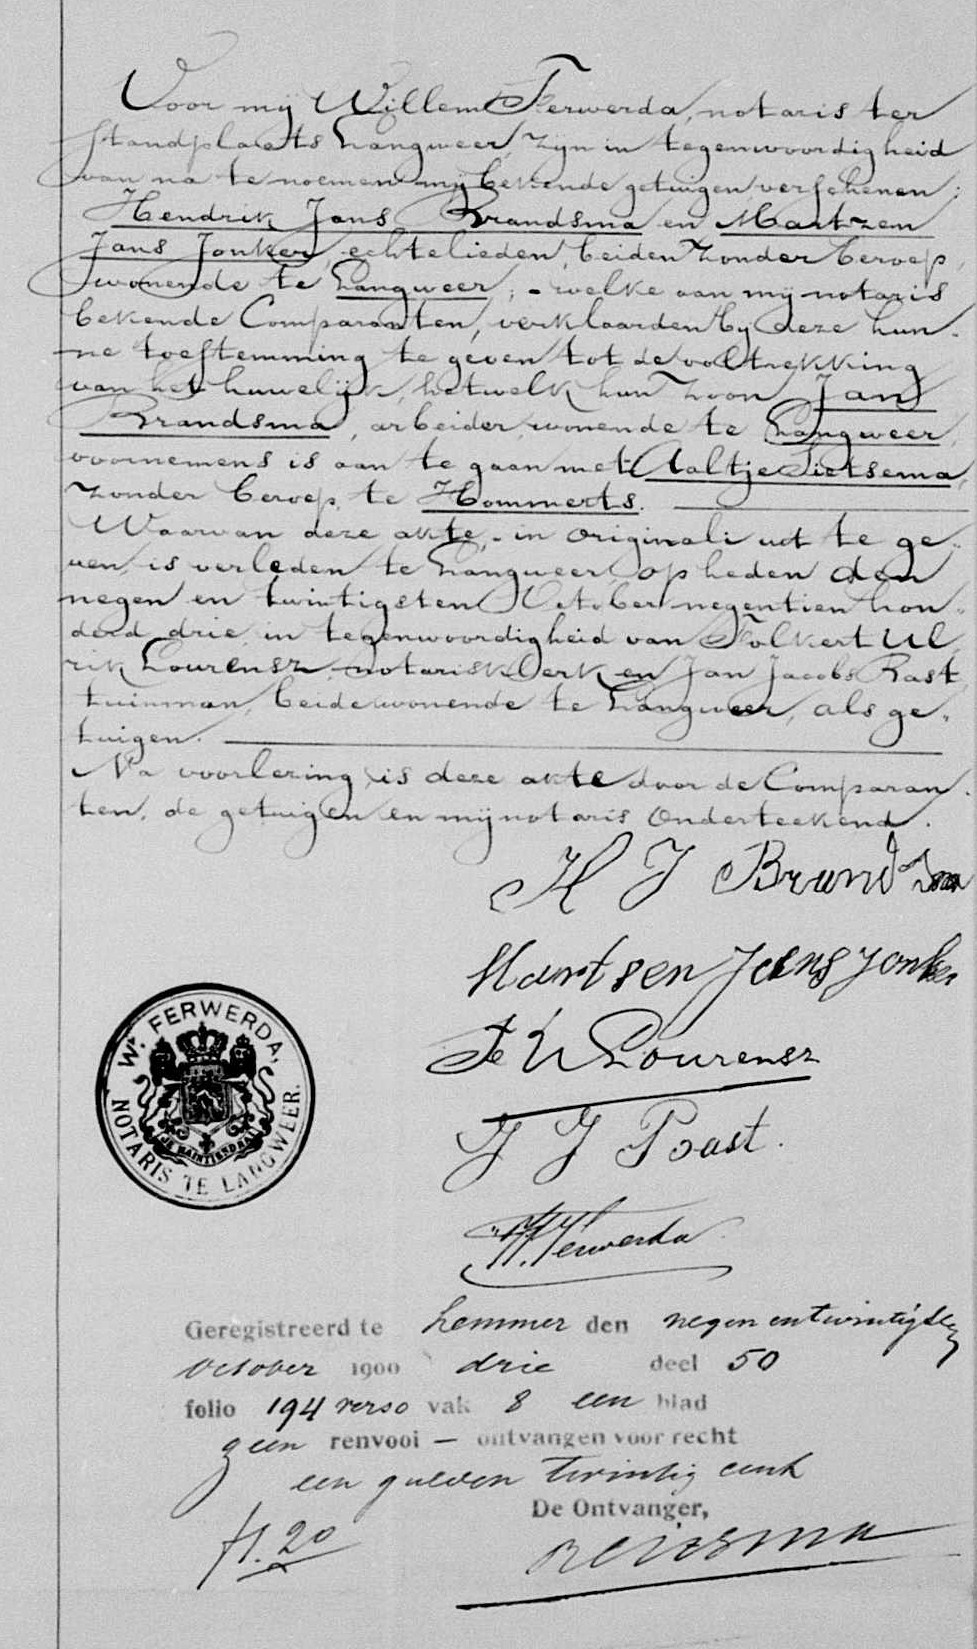 Voor mij Willem Ferwerda, notaris ter
standplaats Langweer, zijn in tegenwoordigheid
van na te noemen mij bekende getuigen verschenen:
Hendrik Jans Brandsma en Martzen
Jans Jonker, echtelieden, beiden zonder beroep,
wonende te Langweer; - welke aan mij notaris
bekende Comparanten, verklaarden by deze hun-
ne toestemming te geven tot de voltrekking
van het huwelijk, hetwelk hun zoon Jan
Brandsma, arbeider, wonende te Langweer,
voornemens is aan te gaan met Aaltje Sietsema,
zonder beroep, te Hommerts.
Waarvan deze akte, - in originali uit te ge-
ven, is verleden te Langweer, op heden den
negen en twintigsten October negentien hon-
derd drie, in tegenwoordigheid van Folkert Ul-
rik Lourensz. notarisklerk en Jan Jacobs Bast,
tuinman, beide wonende te Langweer, als ge-
tuigen.
Na voorlezing is deze akte door de Comparan-
ten, de getuigen en mij notaris Onderteekend.
H J Brandsma
Martsen Jans Jonker
F U Lourensz
J J Bast.
W. Ferwerda
WM. FERWERDA,
NOTARIS TE LANGWEER.
JE MAINTIENDRAI
Geregistreerd te Lemmer den negen en twintigsten
October 1900 drie deel 50
folio 194 verso vak 8 een blad
geen renvooi — ontvangen voor recht
een gulden twintig cent
De Ontvanger,
f1.20